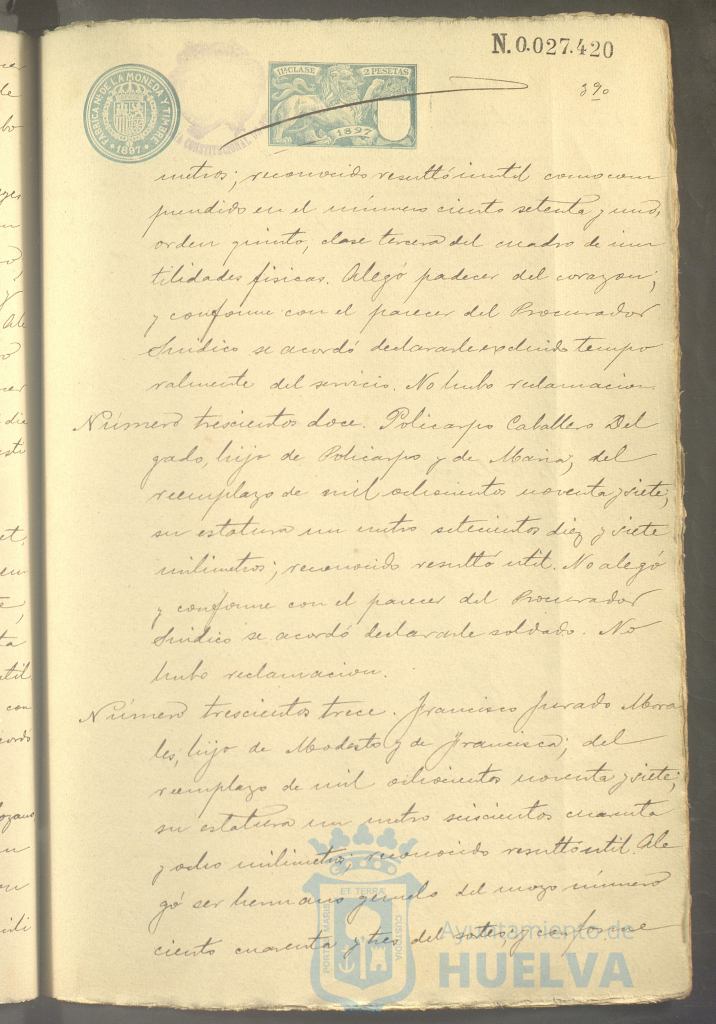 N. 0.027.420
FABRICA N. DE LA MONEDA Y TIMBRE
* 1897 *
CONSTITUCIONAL
11ª CLASE 2 PESETAS
1897
metros; reconocido resultó inutil como com
prendido en el número ciento setenta y uno,
orden quinto, clase tercera del cuadro de inu
tilidades fisicas. Alegó padecer del corazon;
y conforme con el parecer del Procurador
Sindico se acordó declararle excluido tempo
ralmente del servicio. No hubo reclamacion
Número trescientos doce. Policarpo Caballero Del
gado, hijo de Policarpo y de Maria; del
reemplazo de mil ochocientos noventa y siete;
su estatura un metro setecientos diez y siete
milimetros; reconocido resultó util. No alegó
y conforme con el parecer del Procurador
Sindico se acordó declararle soldado. No
hubo reclamacion.
Número trescientos trece. Francisco Jurado Mora
les, hijo de Modesto y de Francisca; del
reemplazo de mil ochocientos noventa y siete;
su estatura un metro seiscientos cuarenta
y ocho milimetros; reconocido resultó util. Ale
gó ser hermano gemelo del mozo número
ciento cuarenta y tres del sorteo y conforme
PORTUS MARIS ET TERRAE CUSTODIA
Ayuntamiento de
HUELVA